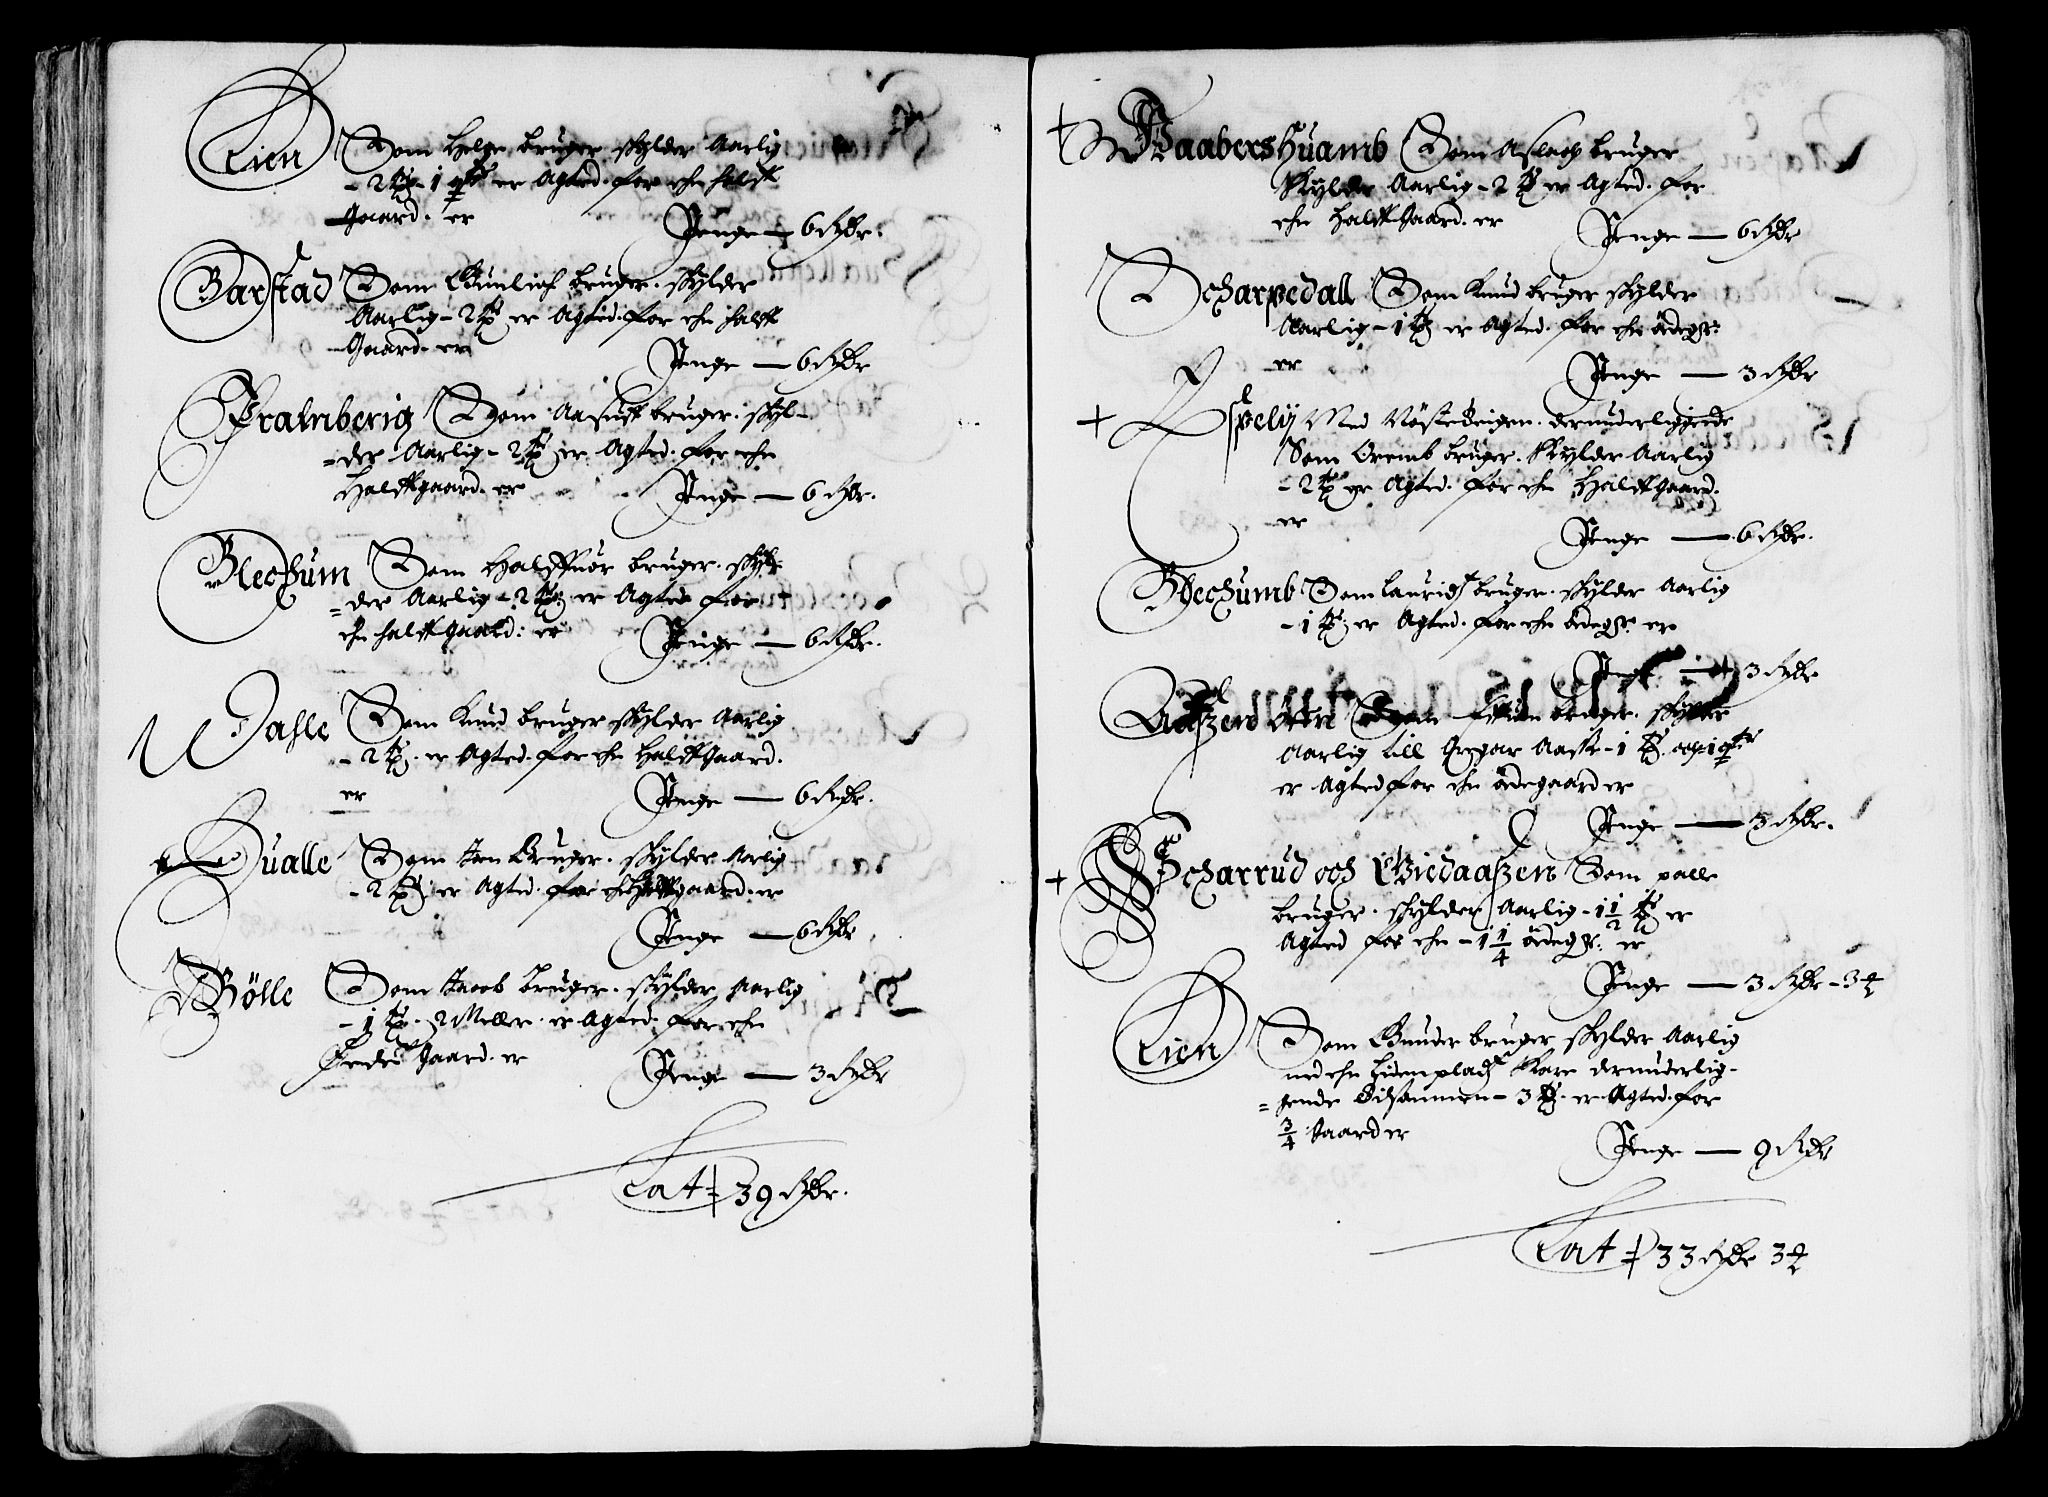 Lien Som Helge bruger skylder Aarlig
- 2 - 1 er Agted for ehn halff
Gaard. er
Penge — 6 Rdr.
Barstad Som Gunlich bruger. skylder
Aarlig - 2 er Agted for ehn halff
Gaard. er
Penge — 6 Rdr
Framberig Som Aasuff bruger. skyl-
= der Aarlig - 2 er Agted. for ehn
Halffgaard. er
Penge — 6 Rdr.
Blechum Som Halffuor bruger. skyl-
= der Aarlig - 2 er Agted for
ehn halff gaard: er
Penge — 6 Rdr.
Dasle Som Knud bruger skylder Aarlig
- 2 er Agted. for ehn Halff Gaard.
er
Penge — 6 Rdr.
Qualle Som Jon Bruger. skylder Aarlig
- 2 er Agted. for ehn Halffgaard. er
Penge — 6 Rdr
Bölle Som Jacob bruger. skylder Aarlig
- 1 2 Meller er Agted. for ehn
Öede Gaard. er
Penge — 3 Rdr
Lat 39 Rdr.
+ Baabershuamb Som Aslach bruger
Skylder Aarlig - 2 er Agted. for
ehn Halff Gaard. er
Penge — 6 Rdr
Scharpedall Som Knud bruger skylder
Aarlig - 1 er Agted. for ehn ödegr:
er
Penge — 3 Rdr
+ Espely Med Nöstedeigen. derunderliggende
Som bruger. Skylder Aarlig
- 2 er Agted. for ehn Halff Gaard.
er
Penge — 6 Rdr.
Blechumb Som Lauridz bruger. skylder Aarlig
- 1 er Agted. for ehn ödegr. er
Penge — 3 Rdr
Aaszen Som bruger. skylder
Aarlig till Aasse - 1 och 1
er Agted for ehn ödegaard er
Penge — 3 Rdr.
+ Scharrud och Giedaaszen Som palle
bruger. skylder Aarlig - 1 1/2 er
Agted for ehn - 1 1/4 ödegr. er
Penge — 3 Rdr - 3
Lien Som Gunder bruger skylder Aarlig
med ehn Lidenpladz Kare derunderlig-
= gende Tilsammen - 3 er Agted. for
3/4 Gaard er
Penge — 9 Rdr
Lat 33 Rdr 3